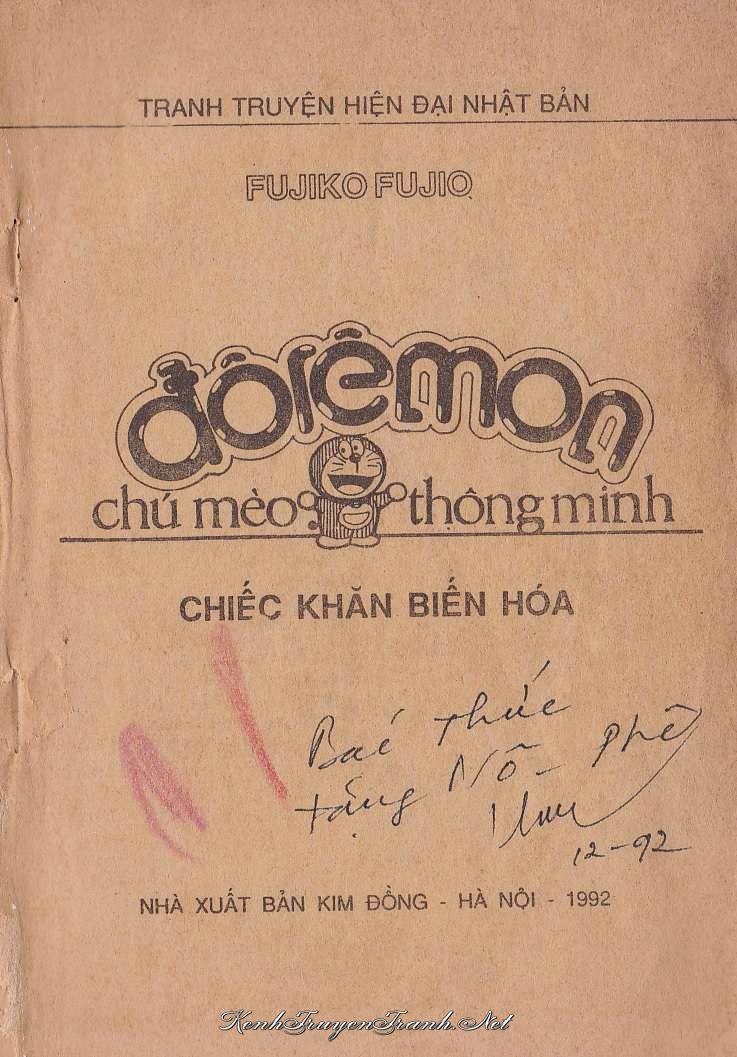 TRANH TRUYỆN HIỆN ĐẠI NHẬT BẢN
FUJIKO FUJIO
đôrêmon
chú mèo thông minh
CHIẾC KHĂN BIẾN HÓA
Bác Thức
tặng Nô - Phê
12-92
NHÀ XUẤT BẢN KIM ĐỒNG - HÀ NỘI - 1992
KenhTruyenTranh.Net